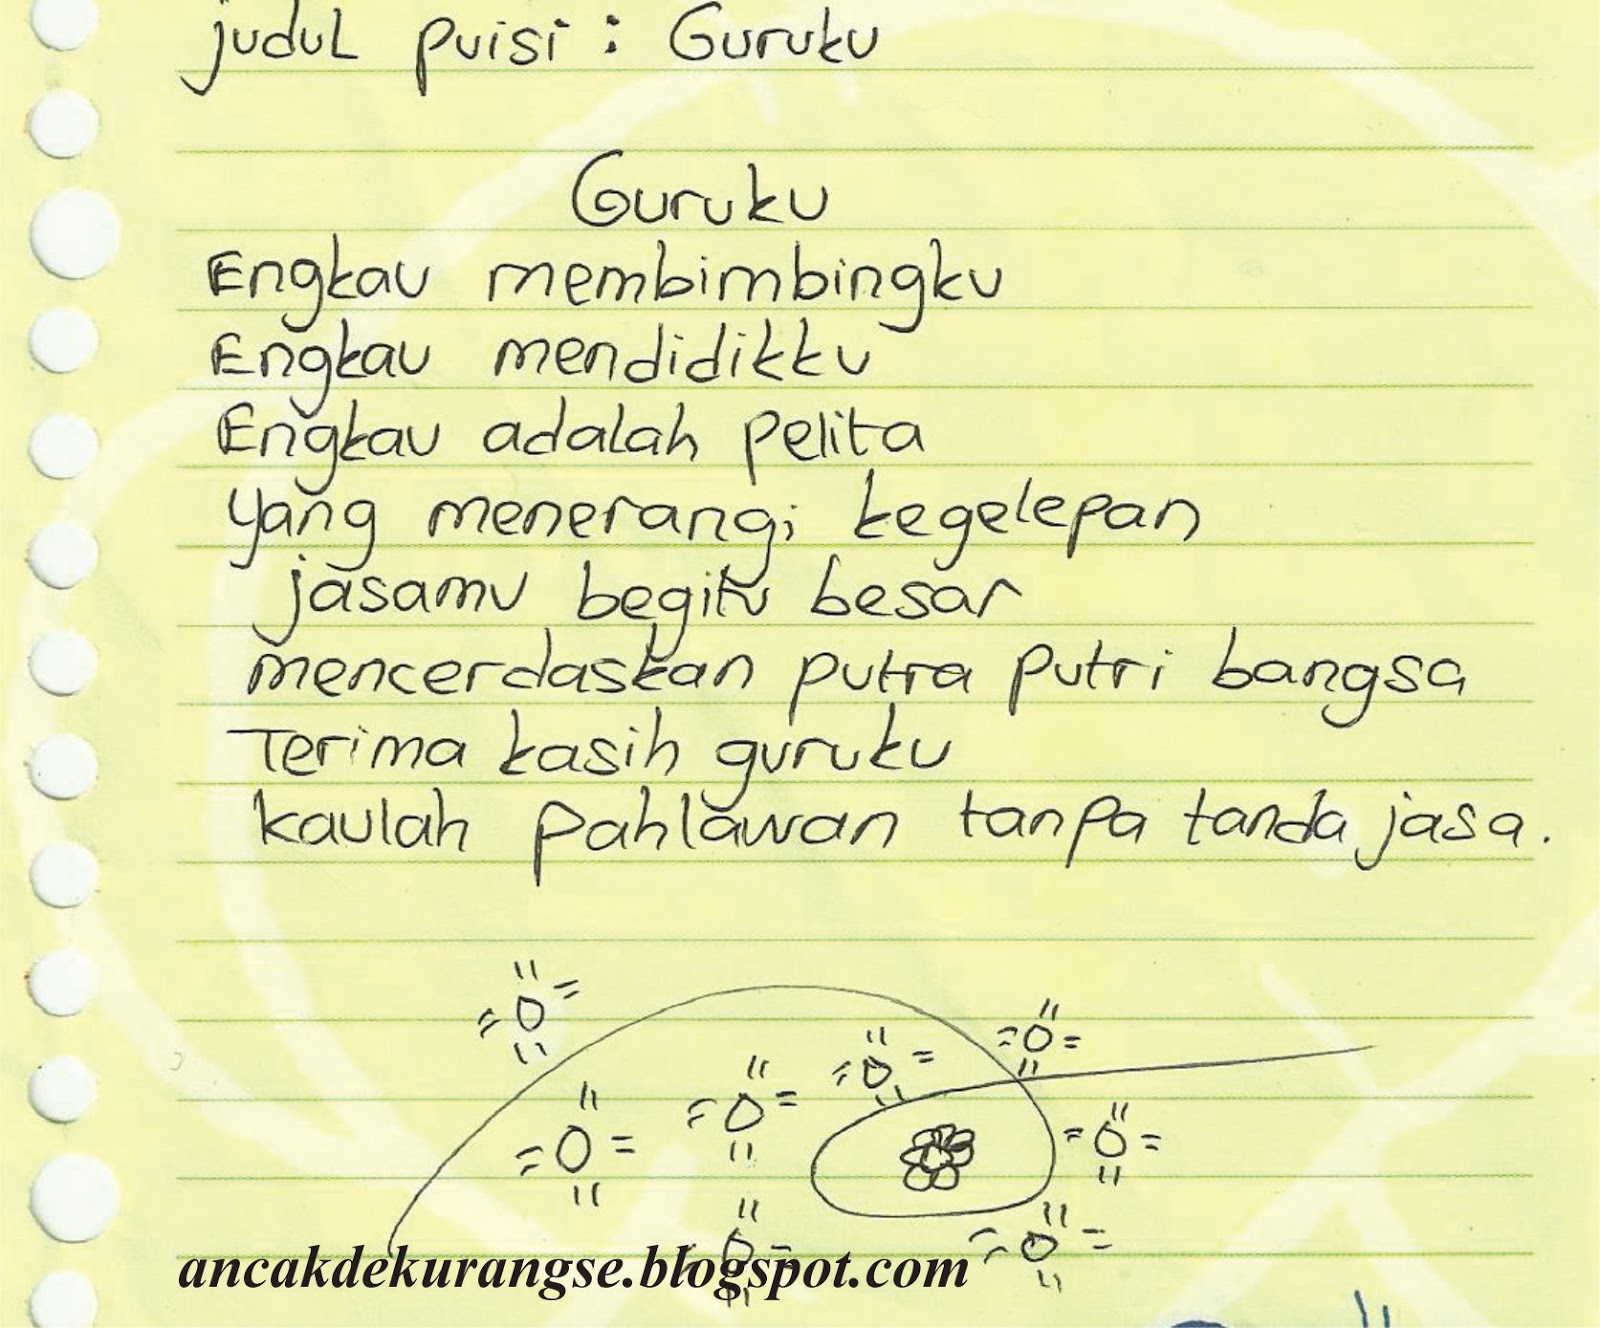 judul puisi : Guruku
Guruku
Engkau membimbingku
Engkau mendidikku
Engkau adalah pelita
yang menerangi kegelepan
jasamu begitu besar
mencerdaskan putra putri bangsa
Terima kasih guruku
kaulah pahlawan tanpa tanda jasa.
ancakdekurangse.blogspot.com